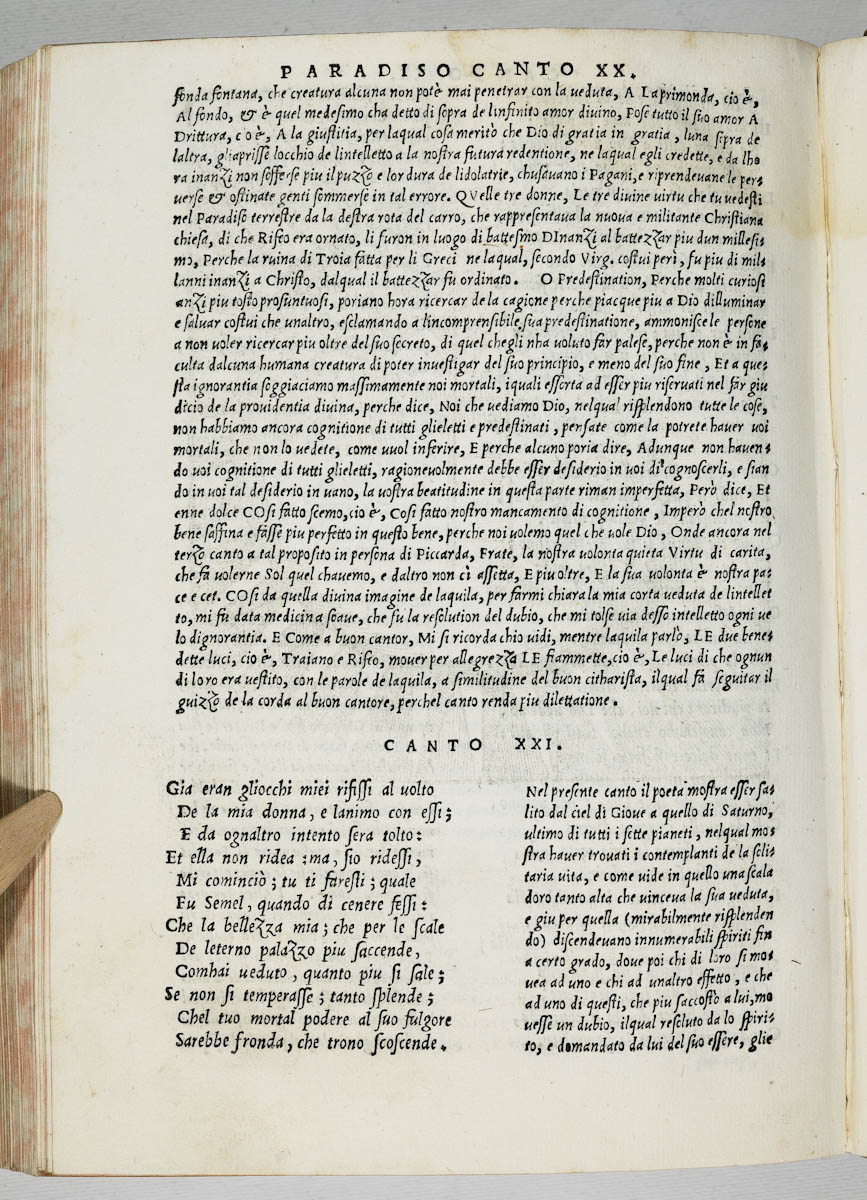 PARADISO CANTO XX.
fonda fontana, che creatura alcuna non potè mai penetrar con la veduta, A Laprimonda, cio è,
Al fondo, & è quel medesimo cha detto di sopra de linfinito amor divino, Pose tutto il suo amor A
Drittura, c o è, A la giustitia, per laqual cosa meritò che Dio di gratia in gratia, luna sopra de
laltra, gliaprisse locchio de lintelletto a la nostra futura redentione, ne laqual egli credette, e da lho
ra inanzi non sofferse piu il puzzo e lordura de lidolatrie, chusavano i Pagani, e riprendevane le per-
verse & ostinate genti sommerse in tal errore. QVelle tre donne, Le tre divine virtu che tu vedesti
nel Paradiso terrestre da la destra rota del carro, che rappresentava la nuova e militante Christiana
chiesa, di che Rifeo era ornato, li furon in luogo di battesmo DInanzi al battezzar piu dun millesi-
mo, Perche la ruina di Troia fatta per li Greci ne laqual, secondo Virg. costui perì, fu piu di mil-
lanni inanzi a Christo, dalqual il battezzar fu ordinato. O Predestination, Perche molti curiosi
anzi piu tosto prosuntuosi, poriano hora ricercar de la cagione perche piacque piu a Dio dilluminar
e salvar costui che unaltro, esclamando a lincomprensibile sua predestinatione, ammonisce le persone
a non voler ricercar piu oltre del suo secreto, di quel chegli nha voluto far palese, perche non è in fa-
culta dalcuna humana creatura di poter investigar del suo principio, e meno del suo fine, Et a que-
sta ignorantia soggiaciamo massimamente noi mortali, iquali essorta ad esser piu riservati nel far giu
dicio de la providentia divina, perche dice, Noi che vediamo Dio, nelqual risplendono tutte le cose,
non habbiamo ancora cognitione di tutti glieletti e predestinati, pensate come la potrete haver voi
mortali, che non lo vedete, come vuol inferire, E perche alcuno poria dire, Adunque non haven-
do voi cognitione di tutti glieletti, ragionevolmente debbe esser desiderio in voi di cognoscerli, e sian
do in voi tal desiderio in vano, la vostra beatitudine in questa parte riman imperfetta, Però dice, Et
enne dolce COsi fatto scemo, cio è, Cosi fatto nostro mancamento di cognitione, Imperò chel nostro
bene saffina e fasse piu perfetto in questo bene, perche noi volemo quel che vole Dio, Onde ancora nel
terzo canto a tal proposito in persona di Piccarda, Frate, la nostra volonta quieta Virtu di carita,
che fa volerne Sol quel chavemo, e daltro non ci assetta, E piu oltre, E la sua volonta è nostra pa-
ce e cet. COsi da quella divina imagine de laquila, per farmi chiara la mia corta veduta de lintellet
to, mi fu data medicina soave, che fu la resolution del dubio, che mi tolse via desso intelletto ogni ve
lo dignorantia. E Come a buon cantor, Mi si ricorda chio vidi, mentre laquila parlò, LE due bene-
dette luci, cio è, Traiano e Rifeo, mover per allegrezza LE fiammette, cio è, Le luci di che ognun
di loro era vestito, con le parole de laquila, a similitudine del buon citharista, ilqual fa seguitar il
guizzo de la corda al buon cantore, perchel canto renda piu dilettatione.
CANTO XXI.
Gia eran gliocchi miei rifissi al volto
De la mia donna, e lanimo con essi;
E da ognaltro intento sera tolto:
Et ella non ridea: ma, sio ridessi,
Mi cominciò; tu ti faresti; quale
Fu Semel, quando di cenere fessi:
Che la bellezza mia; che per le scale
De leterno palazzo piu saccende,
Comhai veduto, quanto piu si sale;
Se non si temperasse; tanto splende;
Chel tuo mortal podere al suo fulgore
Sarebbe fronda, che trono scoscende.
Nel presente canto il poeta mostra esser sa-
lito dal ciel di Giove a quello di Saturno,
ultimo di tutti i sette pianeti, nelqual mo-
stra haver trovati i contemplanti de la soli-
taria vita, e come vide in quello una scala
doro tanto alta che vinceva la sua veduta,
e giu per quella (mirabilmente risplenden
do) discendevano innumerabili spiriti fin
a certo grado, dove poi chi di loro si mo-
vea ad uno e chi ad unaltro effetto, e che
ad uno di questi, che piu saccostò a lui, mo
vesse un dubio, ilqual resoluto da lo spiri-
to, e domandato da lui del suo essere, glie